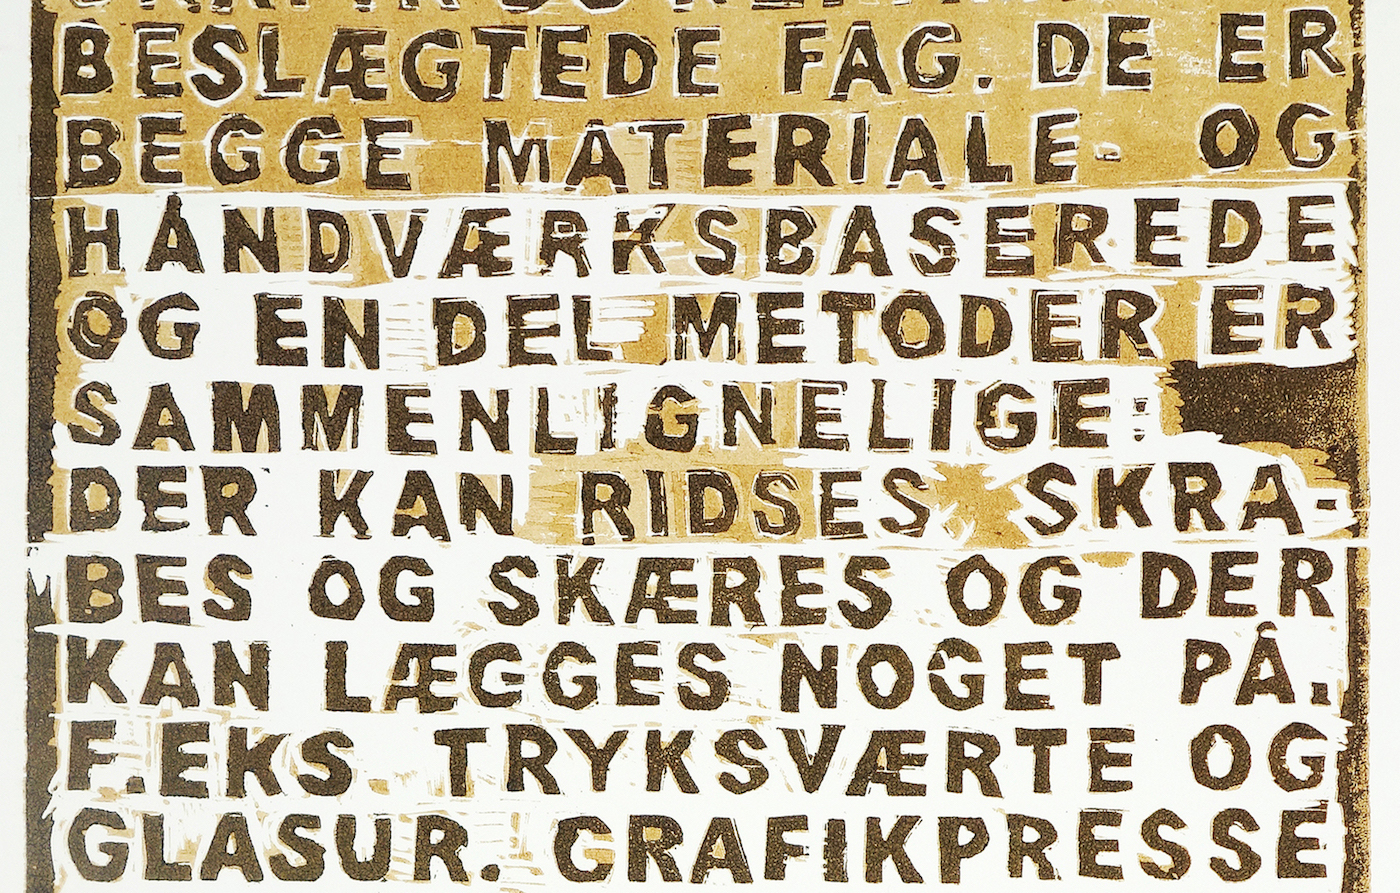 BESLÆGTEDE FAG. DE ER
BEGGE MATERIALE- OG
HÅNDVÆRKSBASEREDE
OG EN DEL METODER ER
SAMMENLIGNELIGE:
DER KAN RIDSES, SKRA-
BES OG SKÆRES OG DER
KAN LÆGGES NOGET PÅ.
F.EKS. TRYKSVÆRTE OG
GLASUR. GRAFIKPRESSE